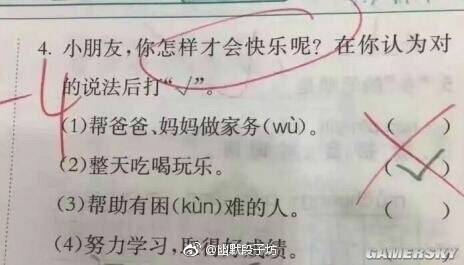 -4
4. 小朋友,你怎样才会快乐呢? 在你认为对
的说法后打“√”。
(1)帮爸爸、妈妈做家务(wù)。 ( )
(2)整天吃喝玩乐。 (√)
(3)帮助有困(kùn)难的人。 ( )
(4)努力学习,取得好成绩。
@幽默段子坊
GAMERSKY